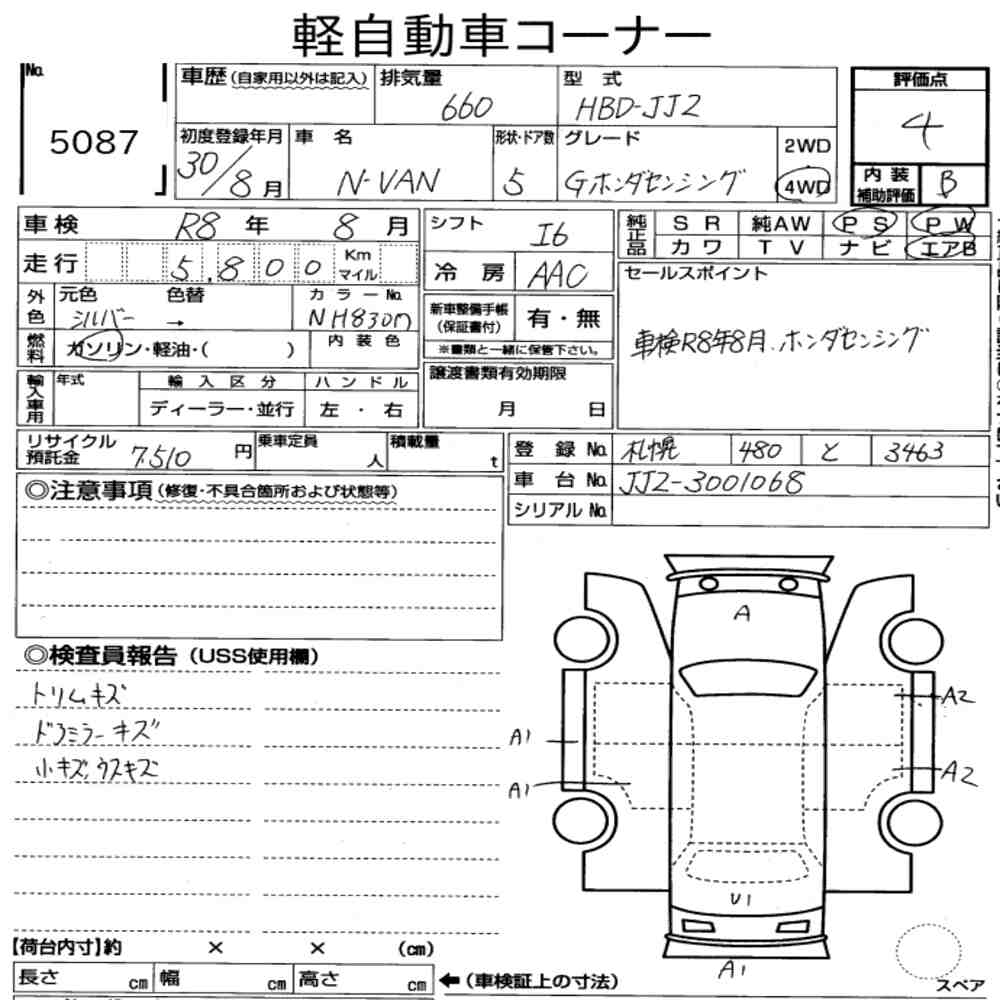 軽自動車コーナー
No. 5087
車歴(自家用以外は記入) 排気量 660 型式 HBD-JJ2
初度登録年月 30/8月 車名 N-VAN 形状・ドア数 5 グレード Gホンダセンシング 2WD 4WD
評価点 4
内装補助評価 B
車検 R8年 8月
走行 5,800 Km マイル
外色 元色 シルバー → 色替 カラーNo. NH830m
燃料 ガソリン・軽油・( ) 内装色
輸入車用 年式 輸入区分 ハンドル
ディーラー・並行 左・右
シフト I6
冷房 AAC
新車整備手帳(保証書付) 有・無
※書類と一緒に保管下さい。
譲渡書類有効期限
月 日
純正品 SR 純AW PS PW
カワ TV ナビ エアB
セールスポイント
車検R8年8月、ホンダセンシング
リサイクル預託金 7,510円 乗車定員 人 積載量 t
登録No. 札幌 480 と 3463
車台No. JJ2-3001068
シリアルNo.
◎注意事項(修復・不具合箇所および状態等)
◎検査員報告(USS使用欄)
トリムキズ
ドアミラーキズ
小キズ,ウスキズ
A
A2
A1
A2
A1
U1
A1
スペア
【荷台内寸】約 × × (cm)
長さ cm 幅 cm 高さ cm ←(車検証上の寸法)